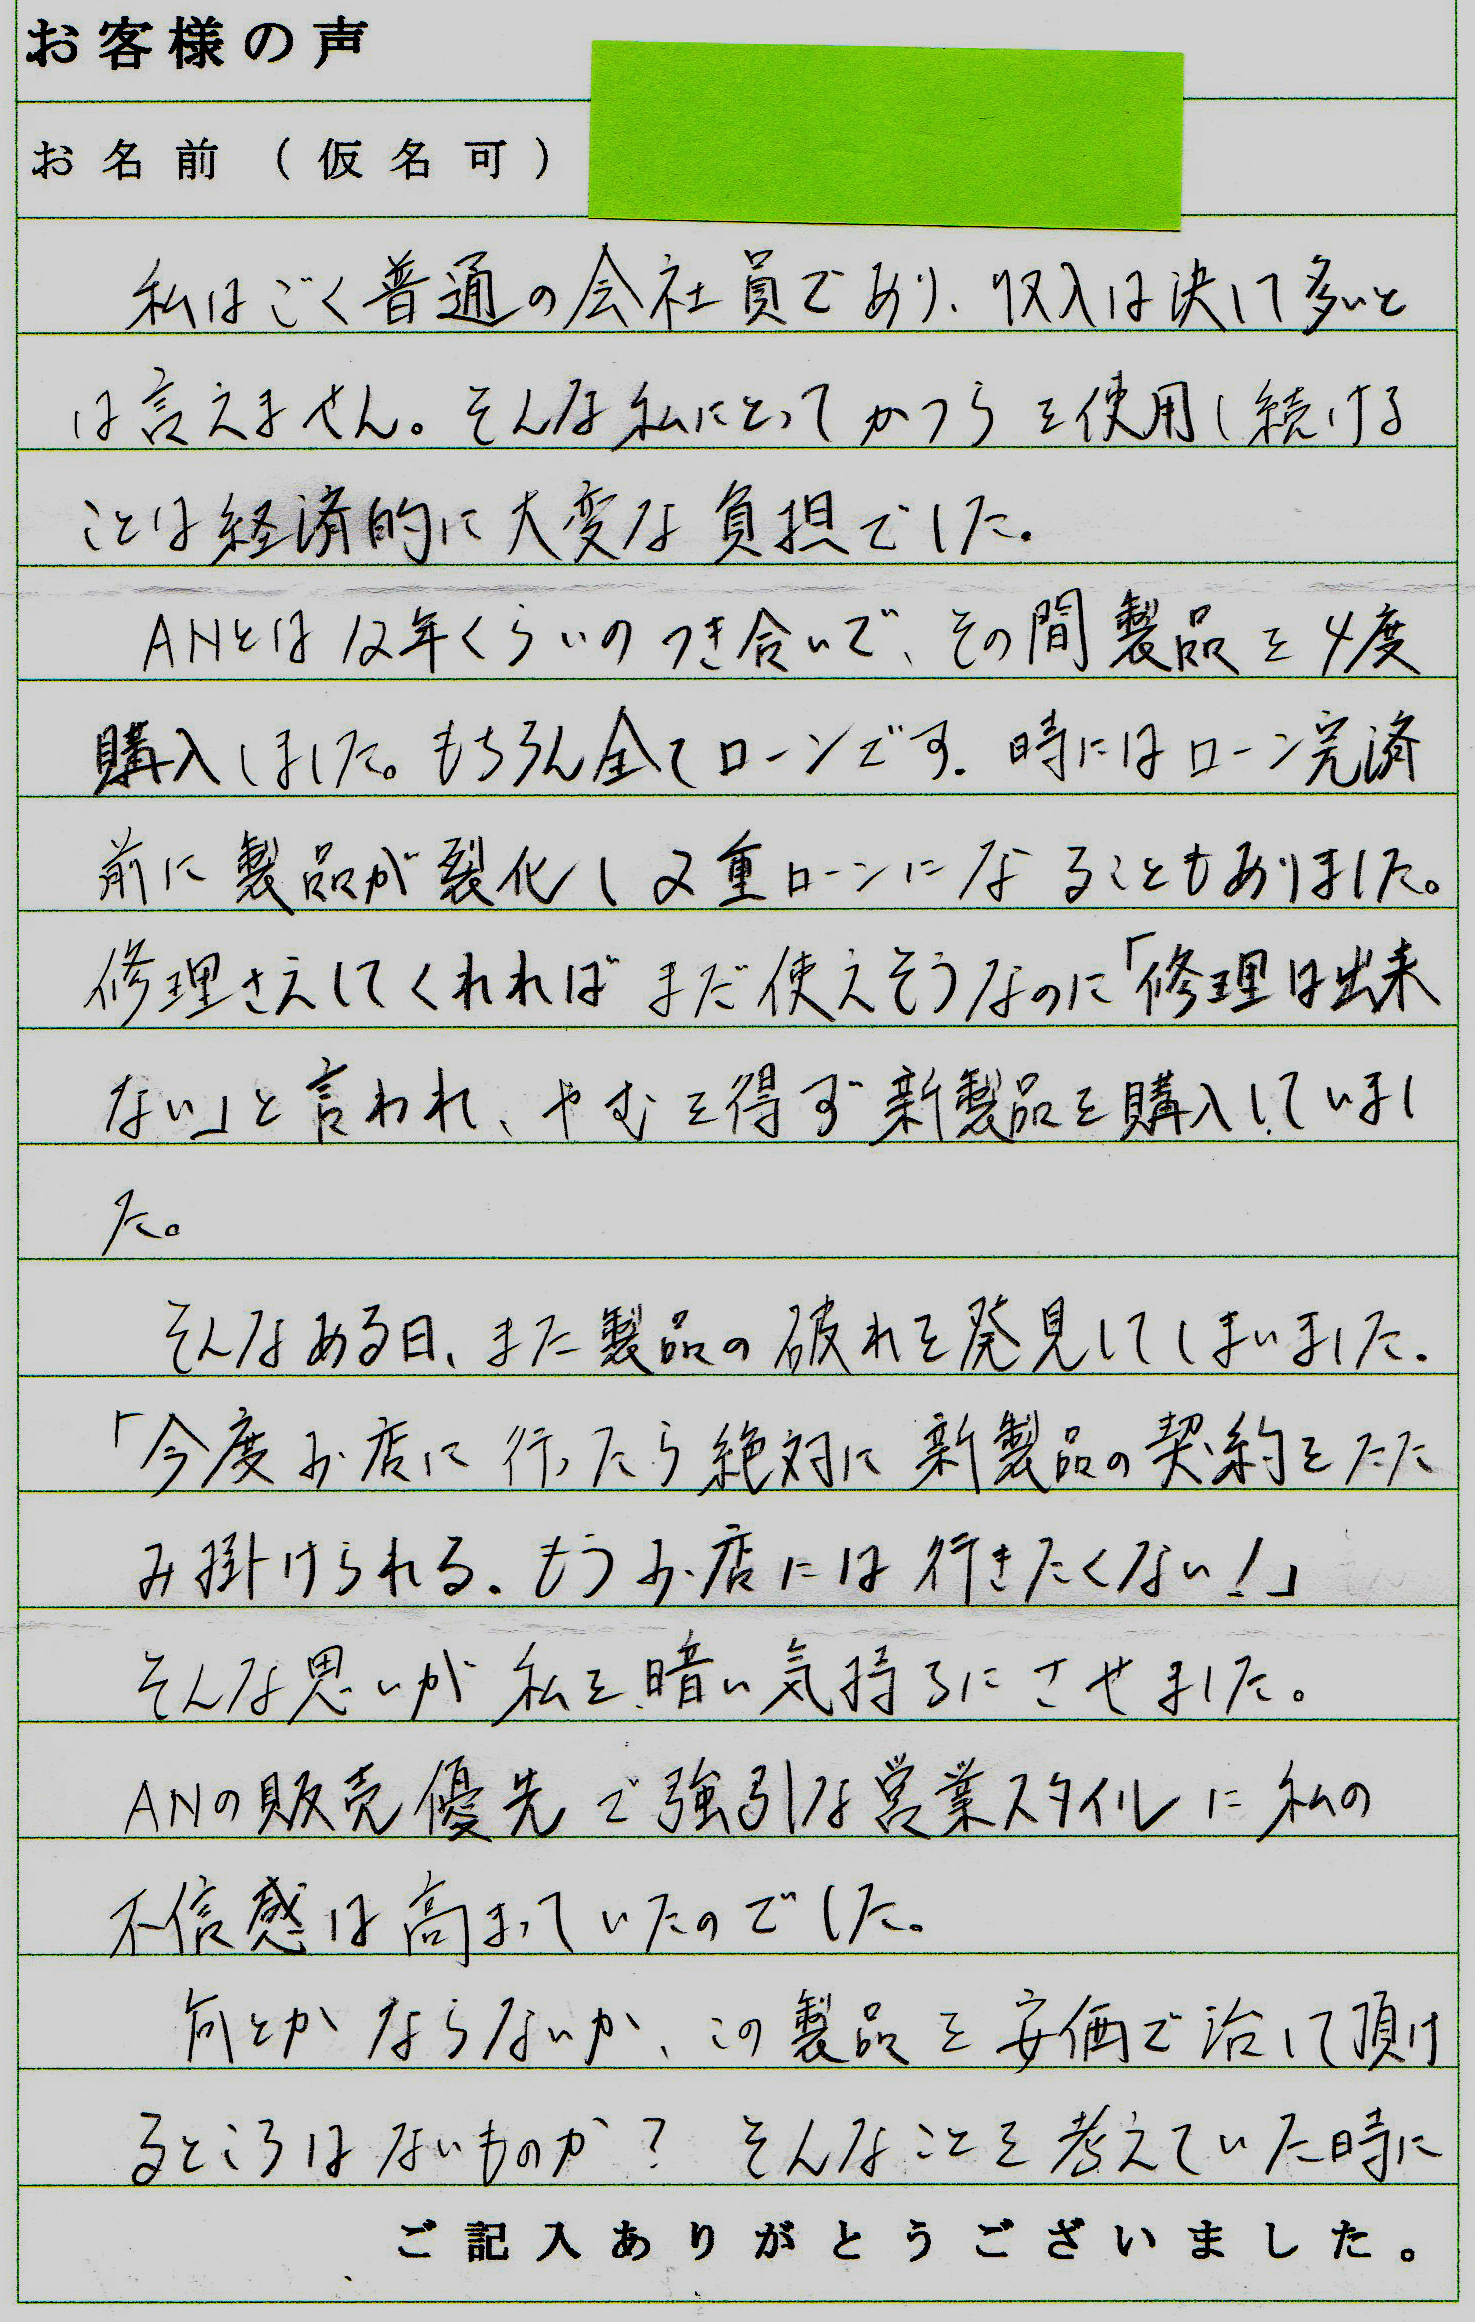 お客様の声
お名前（仮名可）
私はごく普通の会社員であり、収入は決して多いと
は言えません。そんな私にとってかつらを使用し続ける
ことは経済的に大変な負担でした。
ANとは12年くらいのつき合いで、その間製品を4度
購入しました。もちろん全てローンです。時にはローン完済
前に製品が裂化し2重ローンになることもありました。
修理さえしてくれればまだ使えそうなのに「修理は出来
ない」と言われ、やむを得ず新製品を購入していまし
た。
そんなある日、また製品の破れを発見してしまいました。
「今度お店に行ったら絶対に新製品の契約をたた
み掛けられる。もうお店には行きたくない！」
そんな思いが私を暗い気持ちにさせました。
ANの販売優先で強引な営業スタイルに私の
不信感は高まっていたのでした。
何とかならないか、この製品を安価で治して頂け
るところはないものか？ そんなことを考えていた時に
ご記入ありがとうございました。